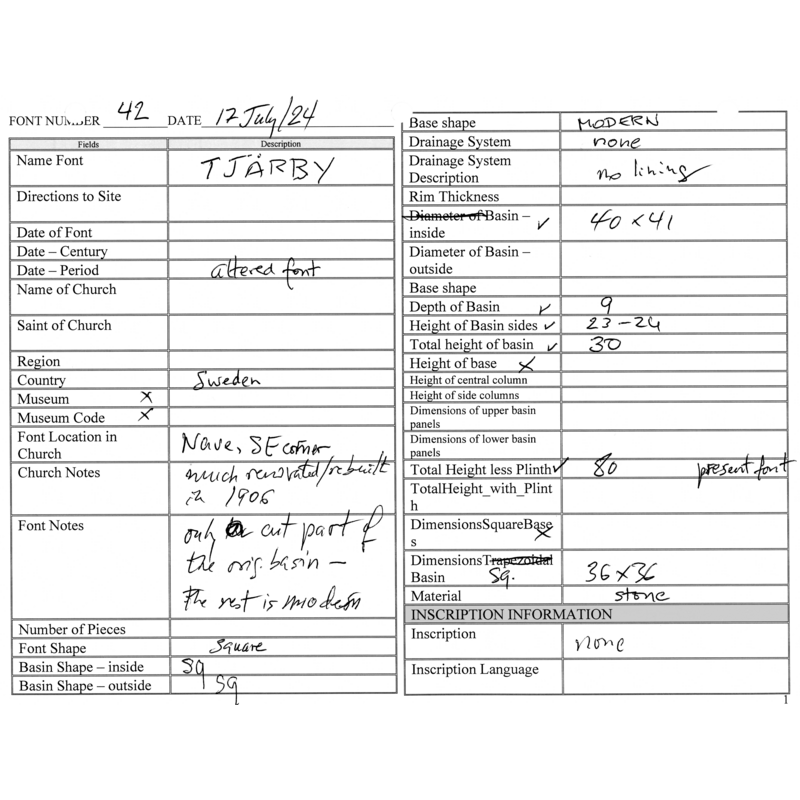 FONT NUMBER 42 DATE 17 July/24
Fields Description
Name Font TJÄRBY
Directions to Site
Date of Font
Date – Century
Date – Period altered font
Name of Church
Saint of Church
Region
Country Sweden
Museum x
Museum Code x
Font Location in
Church Nave, SE corner
Church Notes much renovated/rebuilt
in 1906
Font Notes only a cut part of
the orig. basin –
the rest is modern
Number of Pieces
Font Shape square
Basin Shape – inside sq
Basin Shape – outside sq
Base shape MODERN
Drainage System none
Drainage System
Description no lining
Rim Thickness
Diameter of Basin –
inside ✓ 40 x 41
Diameter of Basin –
outside
Base shape
Depth of Basin ✓ 9
Height of Basin sides ✓ 23 – 24
Total height of basin ✓ 30
Height of base x
Height of central column
Height of side columns
Dimensions of upper basin
panels
Dimensions of lower basin
panels
Total Height less Plinth ✓ 80 present font
TotalHeight_with_Plint
h
DimensionsSquareBase
s x
DimensionsTrapezoidal
Basin Sq. 36 x 36
Material stone
INSCRIPTION INFORMATION
Inscription none
Inscription Language
1